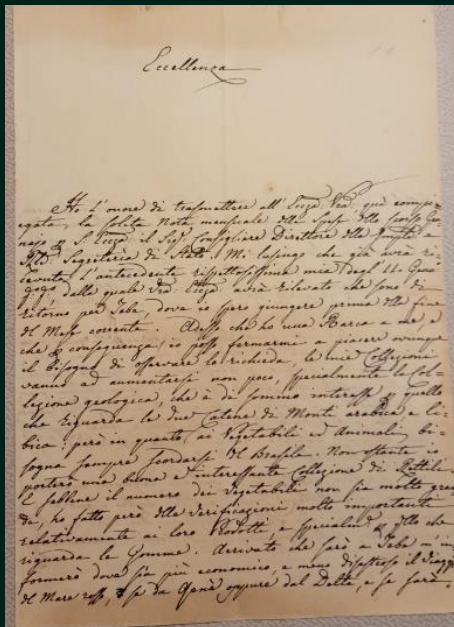 Eccellenza
Ho l'onore di trasmettere all' Ecc.za Vra. quì compie-
gata, la solita Nota mensuale delle Spese dello scorso Gen-
najo S. Ecc.za il Sig.r Consigliere Direttore della
Segreteria di Stato. Mi lusingo che già avrà ri-
cevuta l'antecedente rispettosissima mia degli 11
dalla quale Vra. Ecc.za avrà rilevato che sono di
ritorno per Tebe, dove io spero giungere prima della fine
del Mese corrente. Adesso che ho una Barca a me, e
che conseguenza, io posso fermarmi a piacere ovunque
il bisogno di osservare lo richieda, le mie Collezioni
vanno ad aumentarsi non poco, specialmente la Col-
lezione geologica, che è di sommo interesse quello
che riguarda le due Catene di Monti arabica e li-
bica: però in quanto ai Vegetabili ed Animali, bi-
sogna sempre scordarsi del Brasile. Non ostante io
porterò una buona e interessante Collezione di Rettili.
E sebbene il numero dei Vegetabili non sia molto gran-
de, ho fatto però delle verificazioni molto importanti
relativamente ai loro Prodotti e specialm.e che
riguarda le Gomme. Arrivato che sarò a Tebe m'in-
formerò dove sia più economico, e meno disastroso il Viaggio
del Mare rosso, se da Qenè oppure dal Delta, e se sarà